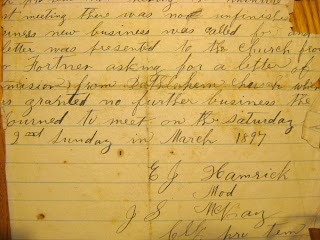 at meeting there was no unfinished
business new business was called for and
letter was presented to the church from
Fortner asking for a letter of
mission from Bethlehem
is granted no further business the
ourned to meet on the Saturday
2nd Sunday in March 1897
E J Hamrick
Mod
J S McCraz
Clk pro tem